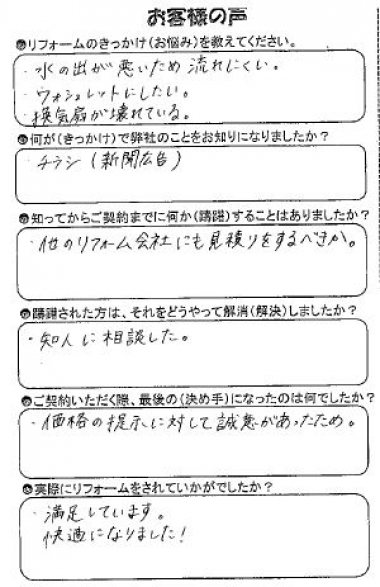 お客様の声
リフォームのきっかけ(お悩み)を教えてください。
・水の出が悪いため流れにくい。
・ウォシュレットにしたい。
・換気扇が壊れている。
何が(きっかけ)で弊社のことをお知りになりましたか?
・チラシ(新聞広告)
知ってからご契約までに何か(躊躇)することはありましたか?
・他のリフォーム会社にも見積りをするべきか。
躊躇された方は、それをどうやって解消(解決)しましたか?
・知人に相談した。
ご契約いただく際、最後の(決め手)になったのは何でしたか?
・価格の提示に対して誠意があったため。
実際にリフォームをされていかがでしたか?
・満足しています。
快適になりました!